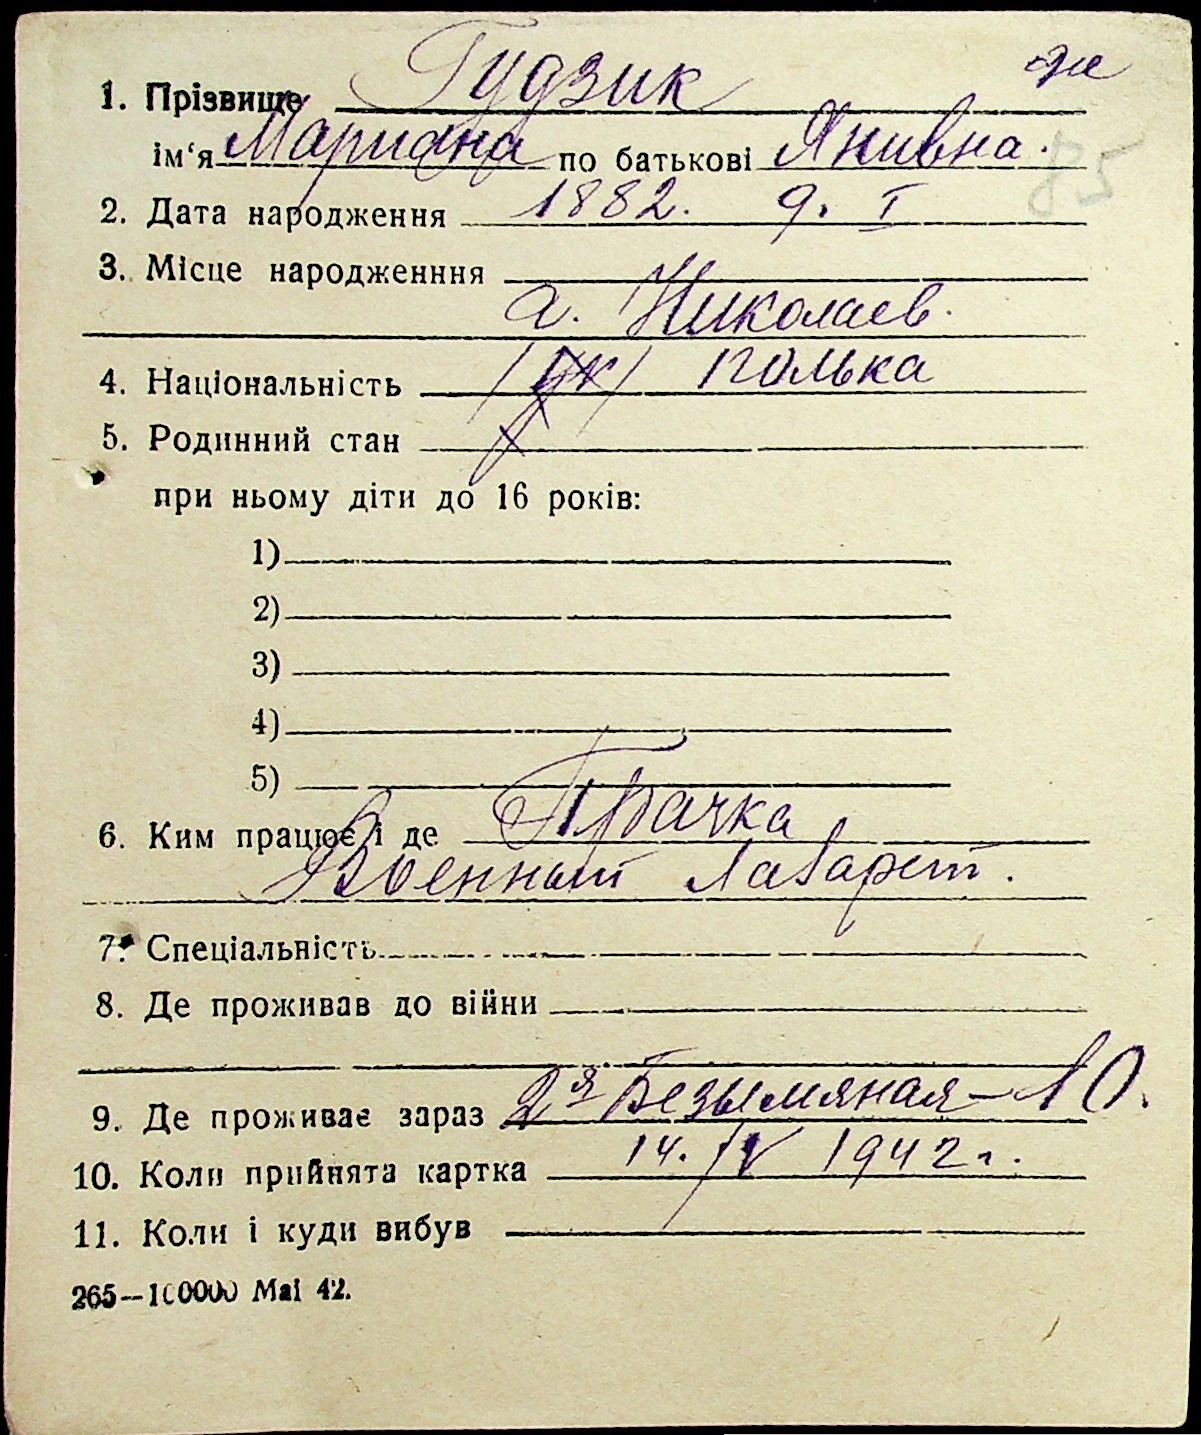 же
1. Прізвище Гудзик
ім‘я Мариана по батькові Янивна.
85
2. Дата народження 1882. 9. I
3. Місце народженння
г. Николаев.
4. Національність (ук) полька
5. Родинний стан
при ньому діти до 16 років:
1)
2)
3)
4)
5)
6. Ким працює і де Прачка
Военный лазарет.
7. Спеціальність
8. Де проживав до війни
9. Де проживає зараз 2я Безымяная – 10.
10. Коли прийнята картка 14. IV 1942 г.
11. Коли і куди вибув
265—100000 Mai 42.